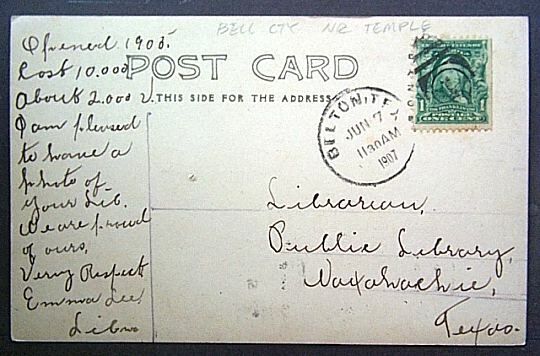 BELL CTY NR TEMPLE
Opened 1905.
Cost 10.000
About 2.000 V.
I am pleased
to have a
photo of
your Lib.
We are proud
of ours,
Very Respect
Emma Lee
Libn
POST CARD
THIS SIDE FOR THE ADDRESS
BELTON, TEX
JUN 7
1130AM
1907
POSTAGE
ONE CENT
Librarian,
Public Library,
Waxahachie,
Texas.